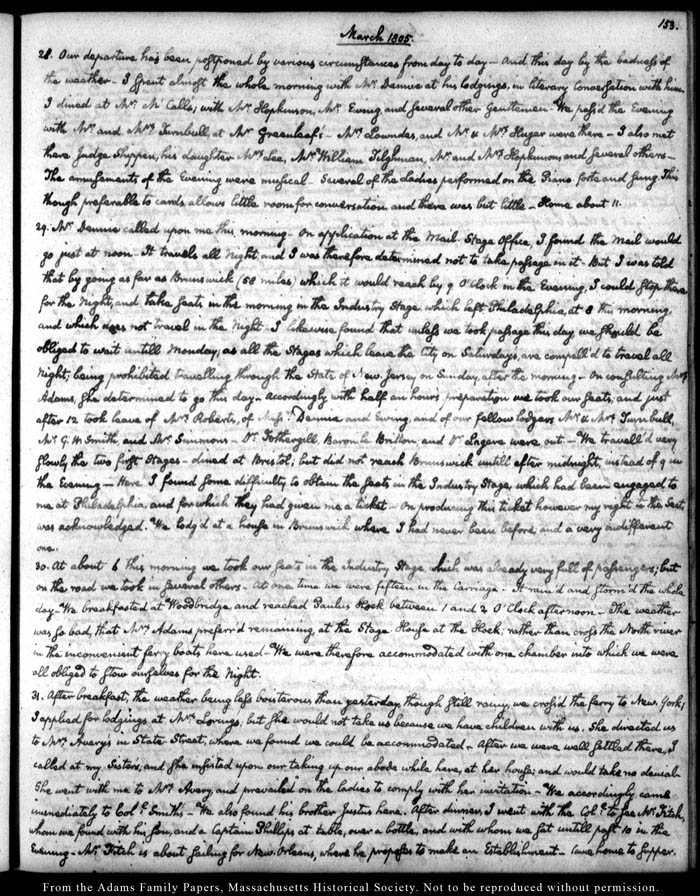 153.
March 1805.
28. Our departure has been postponed by various circumstances from day to day – And this day by the badness of
the weather – I spent almost the whole morning with Mr. Dennie at his lodgings, in literary conversation with him.
I dined at Mr. McCalls, with Mr. Hopkinson, Mr. Ewing and several other Gentlemen – We pass'd the Evening
with Mr. and Mrs. Turnbull, at Mr. Greenleaf's – Mrs. Lowndes, and Mr. & Mrs. Huger were there – I also met
there Judge Shippen, his daughter Mrs. Lea, Mr. William Tilghman, Mr. and Mrs. Hopkinson, and several others –
The amusements of the Evening were musical – Several of the Ladies performed on the Piano forte and sung. This
though preferable to cards allows little room for conversation and there was but little – Home about 11.
29. Mr. Dennie called upon me this morning – On application at the Mail-Stage Office, I found the Mail would
go just at noon – It travels all Night, and I was therefore determined not to take passage in it – But I was told
that by going as far as Brunswick (58 miles) which it would reach by 9 O'Clock in the Evening, I could stop there
for the Night, and take seats in the morning in the Industry Stage, which left Philadelphia, at 8 this morning,
and which does not travel in the Night – I likewise found that unless we took passage this day we should be
obliged to wait untill Monday, as all the Stages which leave the City on Saturdays, are compell'd to travel all
Night; being prohibited travelling through the State of New Jersey on Sunday, after the morning – On consulting Mrs.
Adams, she determined to go this day – accordingly, with half an hours, preparation we took our seats, and just
after 12 took leave of Mrs. Roberts, of Messrs. Dennie and Ewing, and of our fellow lodgers Mr. & Mrs. Turnbull,
Mr. G. W. Smith, and Mr. Simmons – Dr. Fothergill, Baron de Britton, and Dr. were out. – We travell'd very
slowly the two first Stages – dined at Bristol, but did not reach Brunswick untill after midnight, instead of 9 in
the Evening – Here I found some difficulty to obtain the seats in the Industry Stage, which had been engaged to
me at Philadelphia, and for which they had given me a ticket – On producing this ticket however my right to the Seats
was acknowledged. We lodg'd at a house in Brunswick where I had never been before, and a very indifferent
one.
30. At about 6 this morning we took our seats in the Industry Stage, which was already very full of passengers; but
on the road we took in several others – At one time we were fifteen in the Carriage – It rain'd and storm'd the whole
day – We breakfasted at Woodbridge, and reached Paulus Hook between 1 and 2 O'Clock afternoon – The weather
was so bad, that Mrs. Adams preferr'd remaining, at the Stage House at the Hook, rather than cross the North river
in the inconvenient ferry boats here used – We were therefore accommodated with one chamber into which we were
all obliged to stow ourselves for the Night.
31. After breakfast, the weather being less boisterous than yesterday, though still rainy, we cross'd the ferry to New York;
I applied for lodgings at Mrs. Lorings, but she would not take us because we have children with us. She directed us
to Mrs. Avery's in State Street, where we found we could be accommodated – After we were well settled there, I
called at my Sisters, and she insisted upon our taking up our abode while here, at her house; and would take no denial –
She went with me to Mrs. Avery, and prevailed on the ladies to comply with her invitation – We accordingly came
immediately to Coll. Smith's – We also found his brother Justus here. After dinner, I went with the Coll. to see Mr. Fitch,
whom we found with his son, and a Captain Phillips at table, over a bottle, and with whom we sat untill past 10 in the
Evening – Mr. Fitch is about sailing for New Orleans, where he proposes to make an Establishment – Came home to supper.
From the Adams Family Papers, Massachusetts Historical Society. Not to be reproduced without permission.